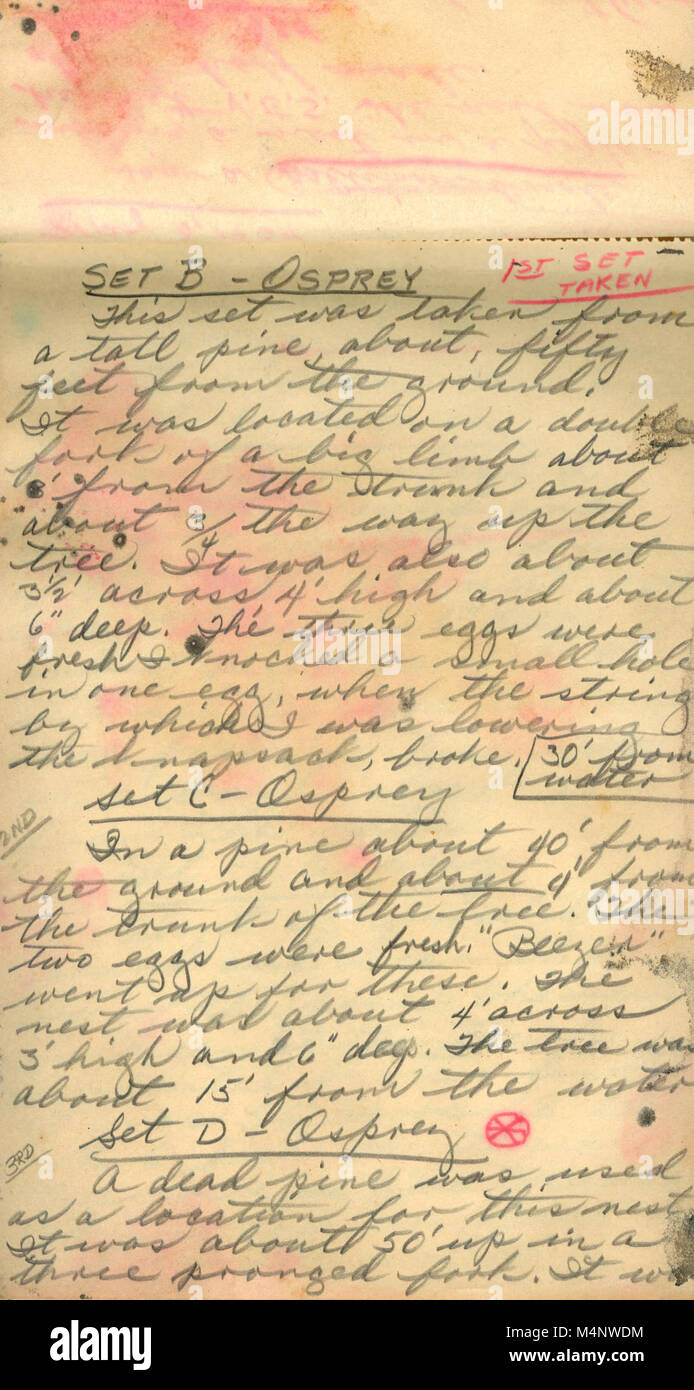 SET B - OSPREY
1ST SET
TAKEN
This set was taken from
a tall pine, about, fifty
feet from the ground.
It was located on a double
fork of a big limb about
from the trunk and
about 3/4 the way up the
tree. It was also about
3½' across 4' high and about
6" deep. The three eggs were
fresh I knocked a small hole
in one egg, when the string
by which I was lowering
the knapsack, broke.
30' from
water
Set C - Osprey
2ND
In a pine about 40' from
the ground and about 4' from
the trunk of the tree. The
two eggs were fresh. "Beezer"
went up for these. The
nest was about 4' across
3' high and 6" deep. The tree was
about 15' from the water
Set D - Osprey
3RD
A dead pine was used
as a location for this nest
It was about 50' up in a
three pronged fork. It was
alamy
Image ID: M4NWDM
www.alamy.com